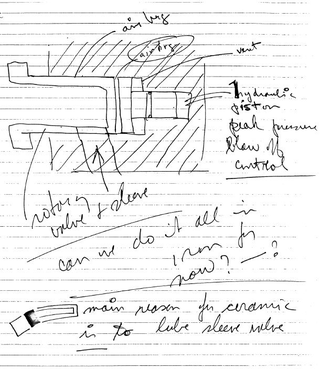 air brg
air brg
vent
hydraulic
piston
peak pressure
blow off
control
rotory
valve & sleeve
can we do it all in
iron for
now? — ?
main reason for ceramic
is to lube sleeve valve